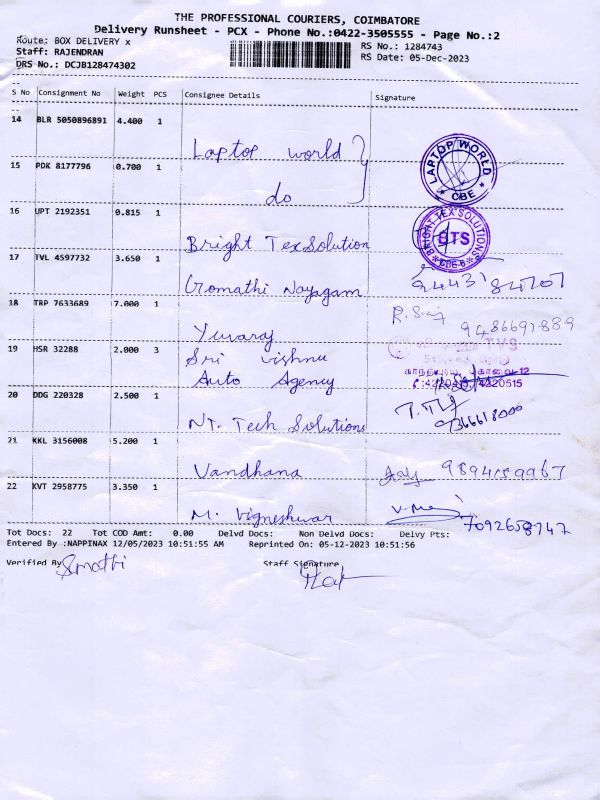 THE PROFESSIONAL COURIERS, COIMBATORE
Delivery Runsheet - PCX - Phone No.:0422-3505555 - Page No.:2
Route: BOX DELIVERY x
RS No.: 1284743
Staff: RAJENDRAN
RS Date: 05-Dec-2023
DRS No.: DCJB128474302
S No Consignment No Weight PCS Consignee Details Signature
14 BLR 5050896891 4.400 1
Laptop world
LAPTOP WORLD * CBE *
15 PDK 8177796 0.700 1
do
16 UPT 2192351 0.815 1
Bright TexSolution
BRIGHT TEX SOLUTIONS BTS
17 TVL 4597732 3.650 1
Gomathi Nayagam
18 TRP 7633689 7.000 1
Yuvaraj
9486691889
19 HSR 32288 2.000 3
Sri Vishnu
T.V.S
Auto Agency
20 DDG 220328 2.500 1
NT. Tech Solutions
21 KKL 3156008 5.200 1
Vandhana
22 KVT 2958775 3.350 1
M. Vigneshwar
7092658747
Tot Docs: 22 Tot COD Amt: 0.00 Delvd Docs: Non Delvd Docs: Delvy Pts:
Entered By :NAPPINAX 12/05/2023 10:51:55 AM Reprinted On: 05-12-2023 10:51:56
Verified By
Staff Signature